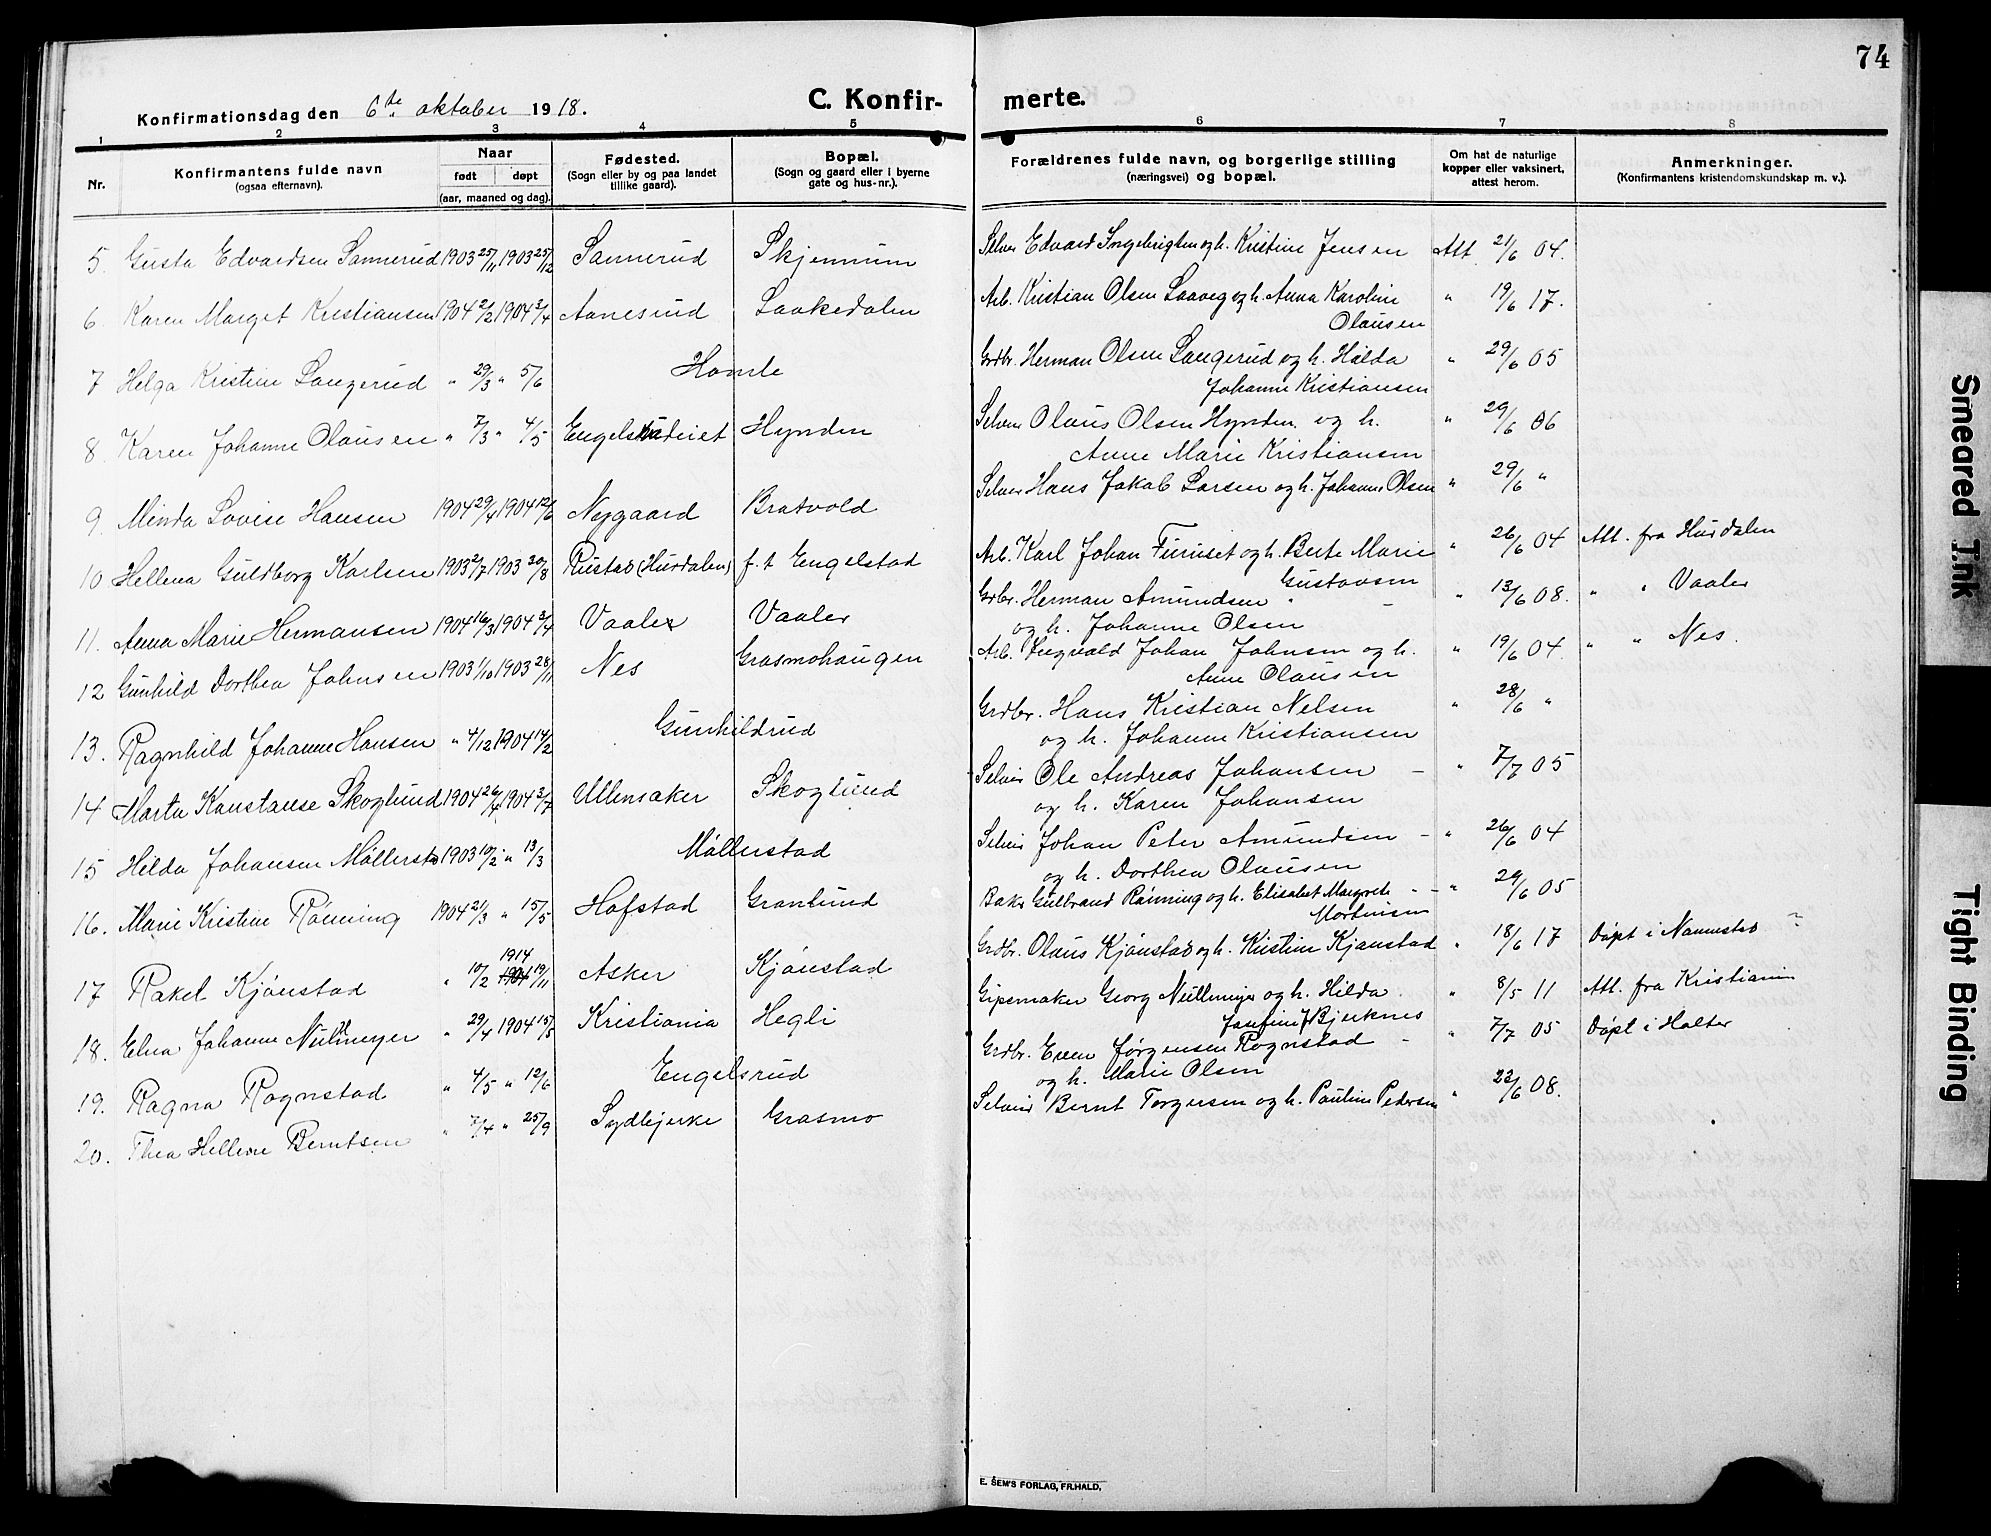 74
Konfirmationsdag den 6te oktober 1918.
C. Konfirmerte.
1 2 3 4 5 6 7 8
Nr.
Konfirmantens fulde navn
(ogsaa efternavn).
Naar
født døpt
(aar, maaned og dag).
Fødested.
(Sogn eller by og paa landet
tillike gaard).
Bopæl.
(Sogn og gaard eller i byerne
gate og hus-nr.).
Forældrenes fulde navn, og borgerlige stilling
(næringsvei) og bopæl.
Om hat de naturlige
kopper eller vaksinert,
attest herom.
Anmerkninger.
(Konfirmantens kristendomskundskap m. v.).
5. Gusta Edvardsen Sannerud 1903 25/11 1903 25/12 Sannerud Skjennum Selveier Edvard Ingebrigtsen og h. Kristine Jensen Att. 21/6 04.
6. Karen Marget Kristiansen 1904 2/2 1904 3/4 Aanesrud Laakedalen Arb. Kristian Olsen Laaveg og h. Anna Karoline " 19/6 17.
Olausen
7 Helga Kristine Langerud " 29/3 " 5/6 Homle Grdbr. Herman Olsen Langerud og h. Hilda " 29/6 05
Johanne Kristiansen
8. Karen Johanne Olausen " 7/3 " 4/5 Hynden Selveier Olaus Olsen Hynden og h. " 29/6 06
Anne Marie Kristiansen
9. Minda Lovise Hansen 1904 29/4 1904 12/6 Nygaard Bratvold Selveier Hans Jakob Larsen og h. Johanne Olsen " 29/6 "
10 Hellena Guldborg Karlsen 1903 2/7 1903 20/8 Rustad (Hurdalen) f. t Engelstad Arb. Karl Johan Furuset og h. Berte Marie " 26/6 04 Att. fra Hurdalen
Gustavsen
11. Anna Marie Hermansen 1904 16/3 1904 3/4 Vaaler Vaaler Grbr. Herman Amundsen " 13/6 08. " " Vaaler
og h. Johanne Olsen
12 Gunhild Dorthea Johnsen 1903 1/10 1903 28/11 Nes Grasmohaugen Arb. Johan Johnsen og h. " 19/6 04. " " Nes.
Anne Olausen
13. Ragnhild Johanne Hansen " 4/12 1904 14/2 Gunhildrud Grdbr. Hans Kristian Nelsen " 28/6 "
og h. Johanne Kristiansen
14 Marta Konstanse Skoglund 1904 26/4 1904 3/7 Ullensaker Skoglund Selveier Ole Andreas Johansen – " 7/7 05
og h. Karen Johansen
15 Hilda Johansen Møllerst 1903 10/2 " 13/3 Møllerstad Selveier Johan Peter Amundsen – " 26/6 04
og h. Dorthea Olausen
16. Marie Kristine Rønning 1904 21/3 " 15/5 Hofstad Granlund Baker Gulbrand Rønning og h. Elisabet Margrete – " 29/6 05
Mortinsen
17 Rakel Kjønstad " 10/2 1914 19/11 Asker Kjønstad Grdbr. Olaus Kjønstad og h. Kristine Kjønstad " 18/6 17 Døpt i Nannestad
18. Elna Johanne Nüllmeyer " 29/4 1904 15/5 Kristiania Hegli Gipsmaker Georg Nüllmeyer og h. Hilda " 8/5 11 Att. fra Kristiania
Josefine Bjerknes
19. Ragna Rognstad " 4/5 " 12/6 Engelsrud Grdbr. Even Jørgensen Rognstad – " 7/7 05 Døpt i Holter
og h. Marie Olsen
20. Thea Hellene Berntsen " 7/4 " 25/9 Sydbjerke Grasmo Selveier Bernt Torgersen og h. Pauline Pedersen " 22/6 08.
E. SEM'S FORLAG, FR.HALD.
Smeared Ink
Tight Binding